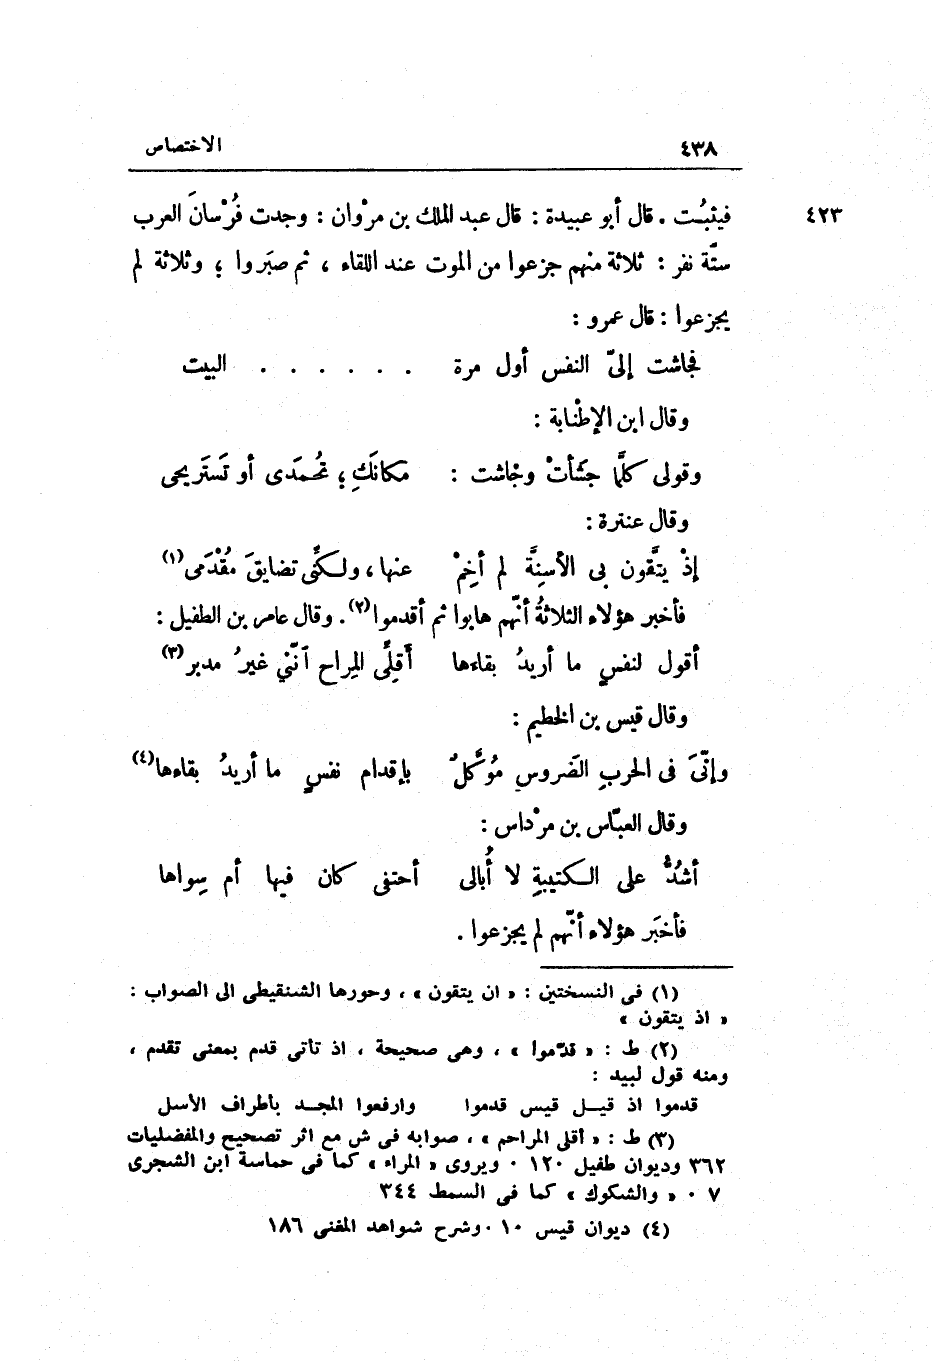 ٤٣٨ الاختصاص
٤٢٣ فيثبُت . قال أبو عبيدة : قال عبد الملك بن مرْوان : وجدت فُرْسانَ العرب
ستّة نفر : ثلاثة منهم جزعوا من الموت عند اللقاء ، ثم صبَروا ؛ وثلاثة لم
يجزعوا : قال عمرو :
فجاشت إلىّ النفس أول مرة . . . . . . البيت
وقال ابن الإطْنابة :
وقولى كلَّما جشَأتْ وجاشت : مكانَكِ ؛ تُحْمَدى أو تَستَريحى
وقال عنترة :
إذْ يتَّقون بى الأسِنَّة لم أخِمْ عنها ، ولكنِّى تضايقَ مُقْدَمى(١)
فأخبر هؤلاء الثلاثةُ أنّهم هابوا ثم أقدموا(٢) . وقال عامر بن الطفيل :
أقول لنفسٍ ما أريدُ بقاءها أَقِلِّى المِراح آنّني غيرُ مدبر(٣)
وقال قيس بن الخطيم :
وإنّىَ فى الحربِ الضَروسِ مُوَكَّلٌ بإقدام نفسٍ ما أريدُ بقاءها(٤)
وقال العبّاس بن مرْداس :
أشدُّ على الكتيبةِ لا أُبالى أحتفى كان فيها أم سِواها
فأخبَر هؤلاء أنّهم لم يجزعوا .
(١) فى النسختين : « ان يتقون » ، وحورها الشنقيطى الى الصواب :
« اذ يتقون »
(٢) ط : « قدّموا » ، وهى صحيحة ، اذ تأتى قدم بمعنى تقدم ،
ومنه قول لبيد :
قدموا اذ قيل قيس قدموا وارفعوا المجد بأطراف الأسل
(٣) ط : « أقلى المراحم » ، صوابه فى ش مع اثر تصحيح والمفضليات
٣٦٢ وديوان طفيل ١٢٠ . ويروى « المراء » كما فى حماسة ابن الشجرى
٧ . « والشكوك » كما فى السمط ٣٤٤
(٤) ديوان قيس ١٠ . وشرح شواهد المغنى ١٨٦